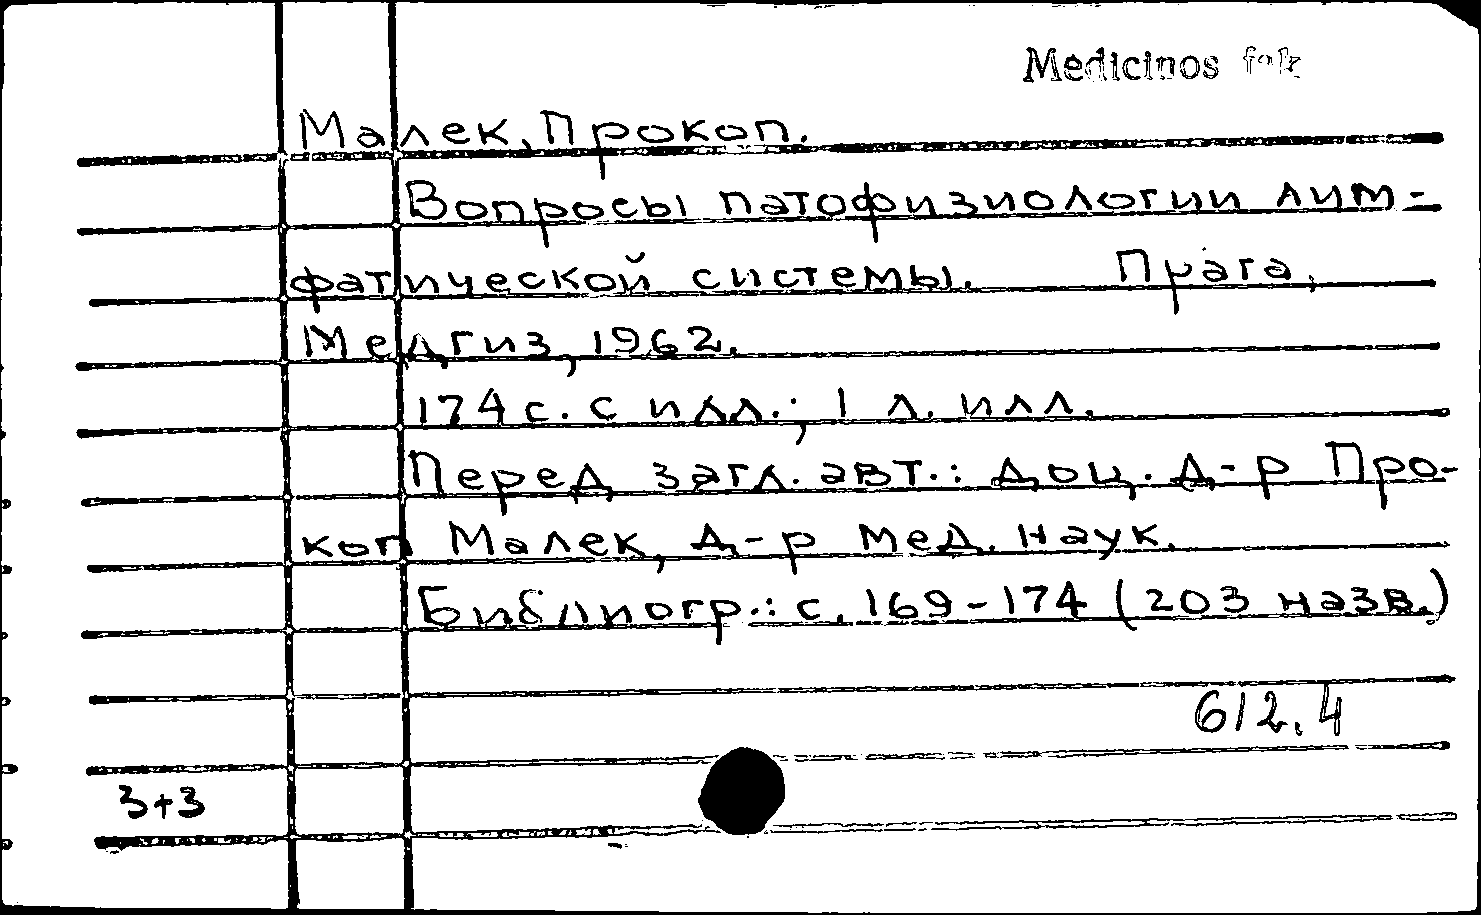 Medicinos fak
Малек, Прокоп.
Вопросы патофизиологии лим-
фатической системы. Прага,
Медгиз, 1962.
174 с. с илл.; 1 л. илл.
Перед загл. авт.: доц. д-р Про-
коп Малек, д-р мед. наук.
Библиогр.: с. 169-174 (203 назв.)
612.4
3+3